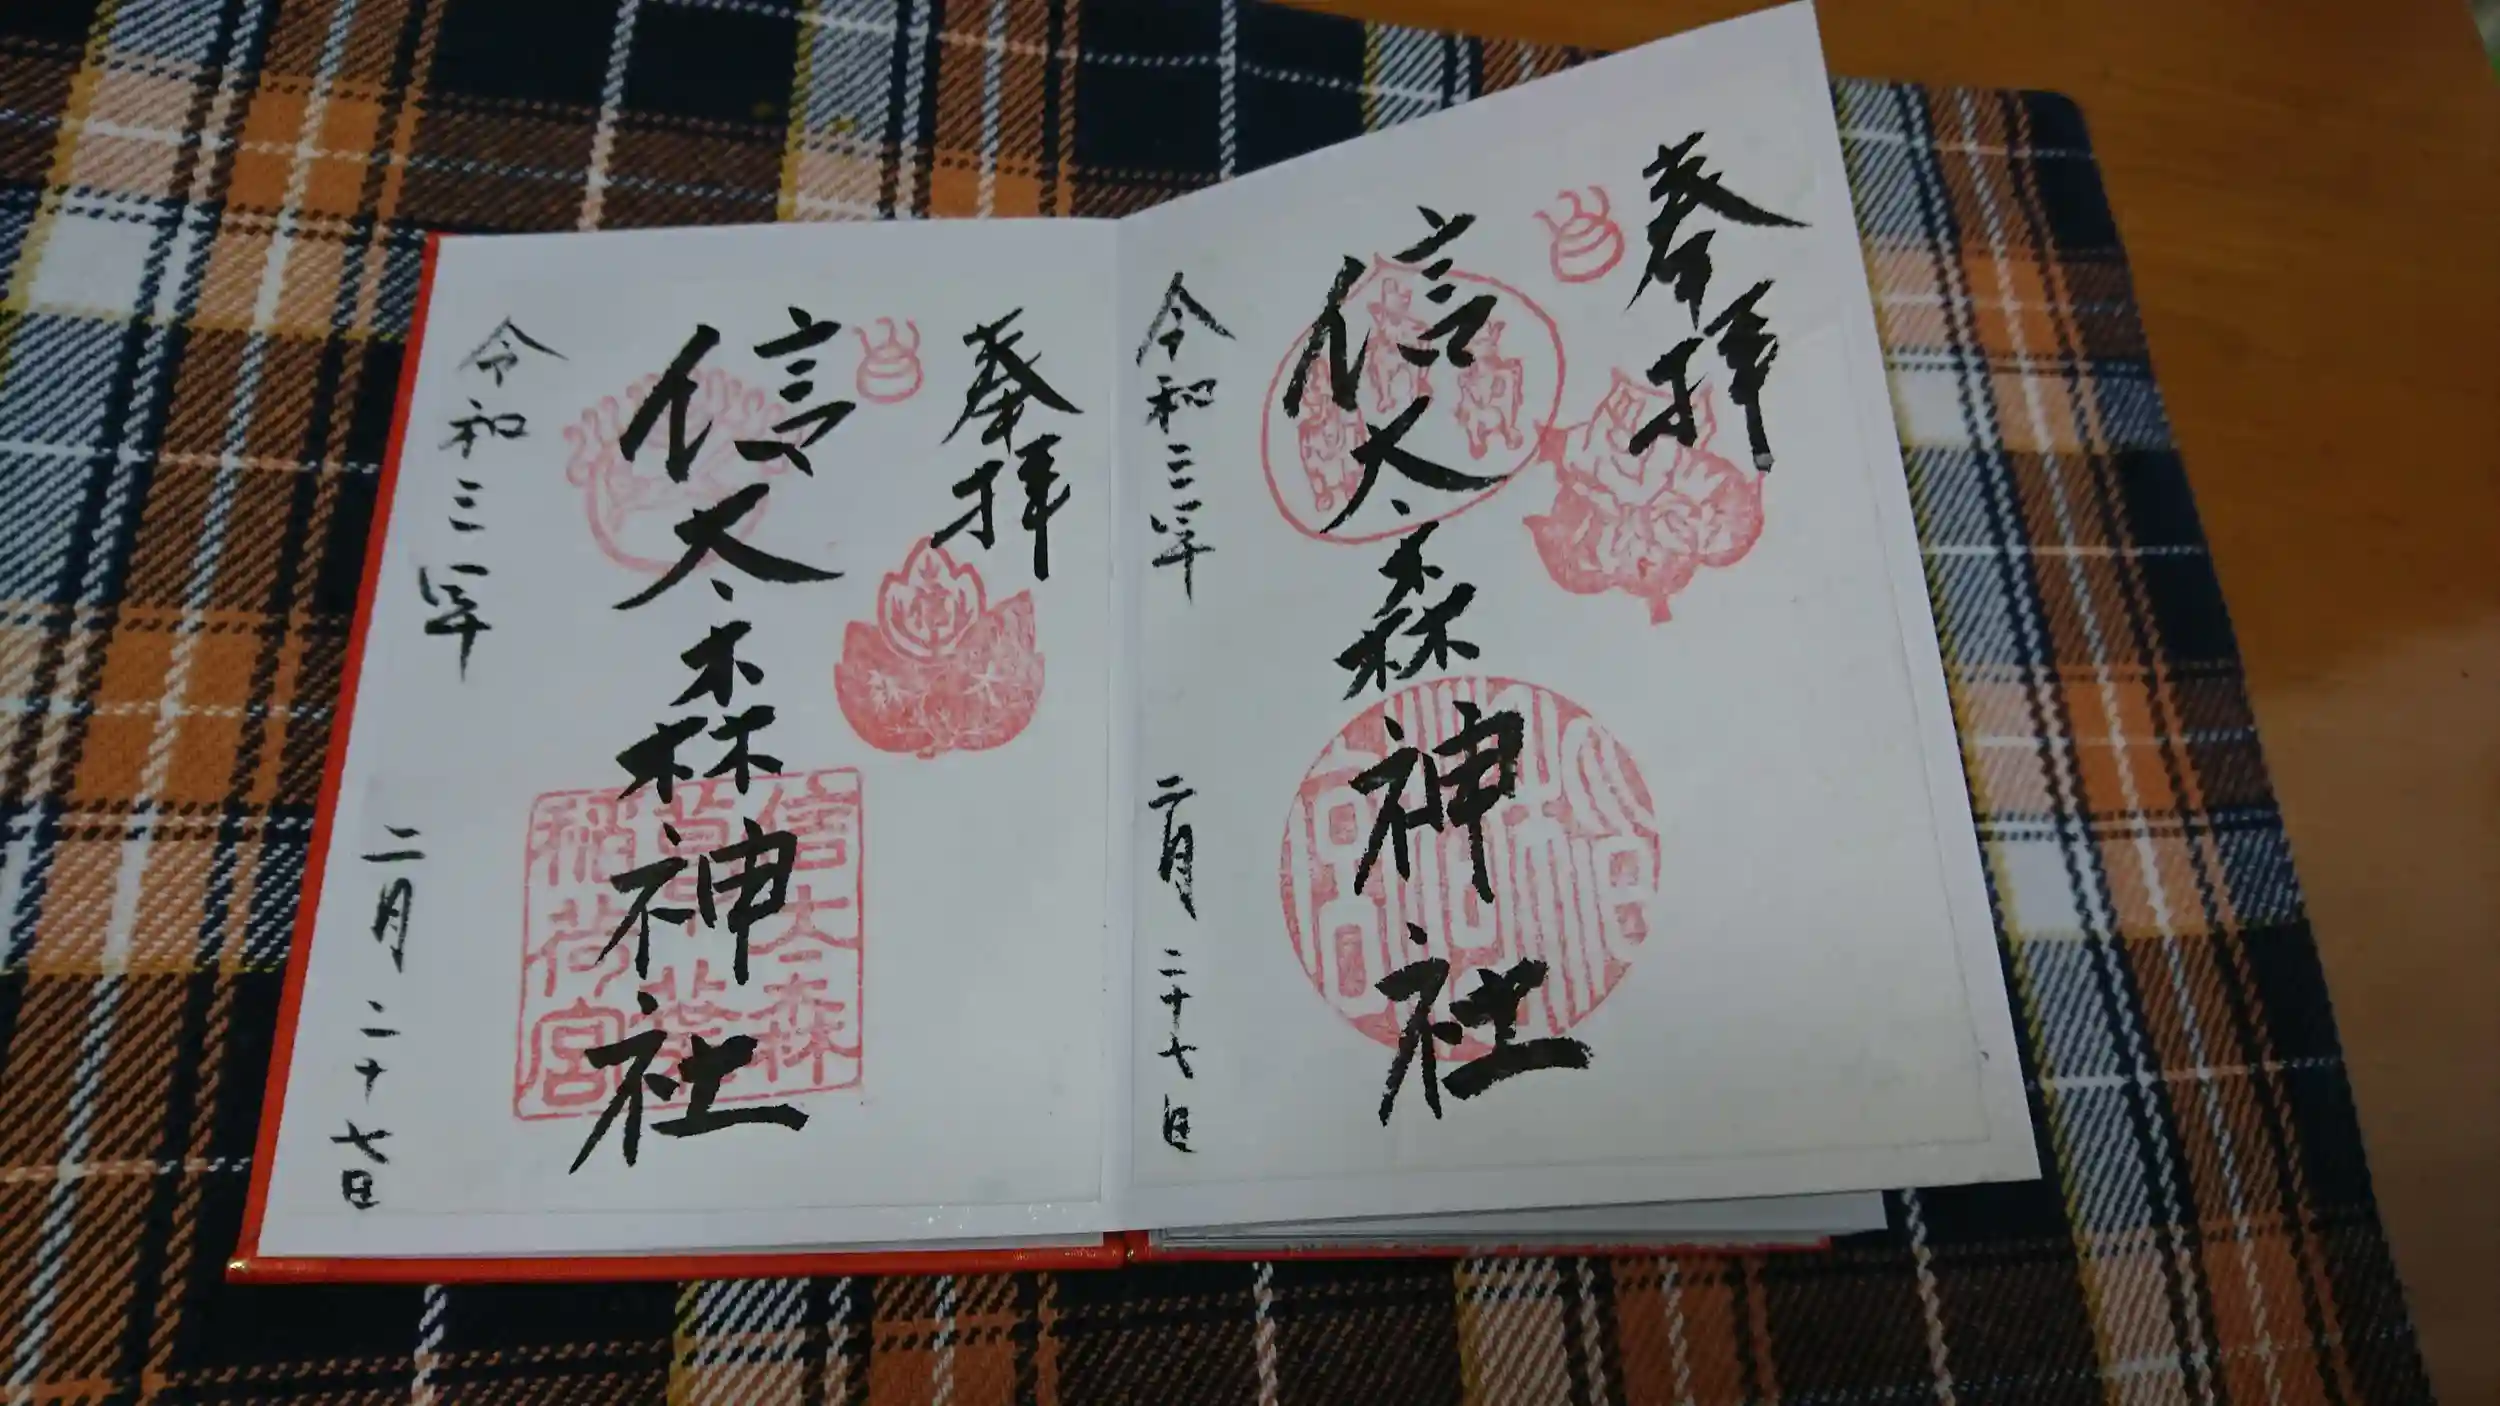 奉拝
信太森神社
令和三年 二月 二十七日
奉拝
信太森神社
令和三年 二月 二十七日
信太森
葛葉
稲荷宮